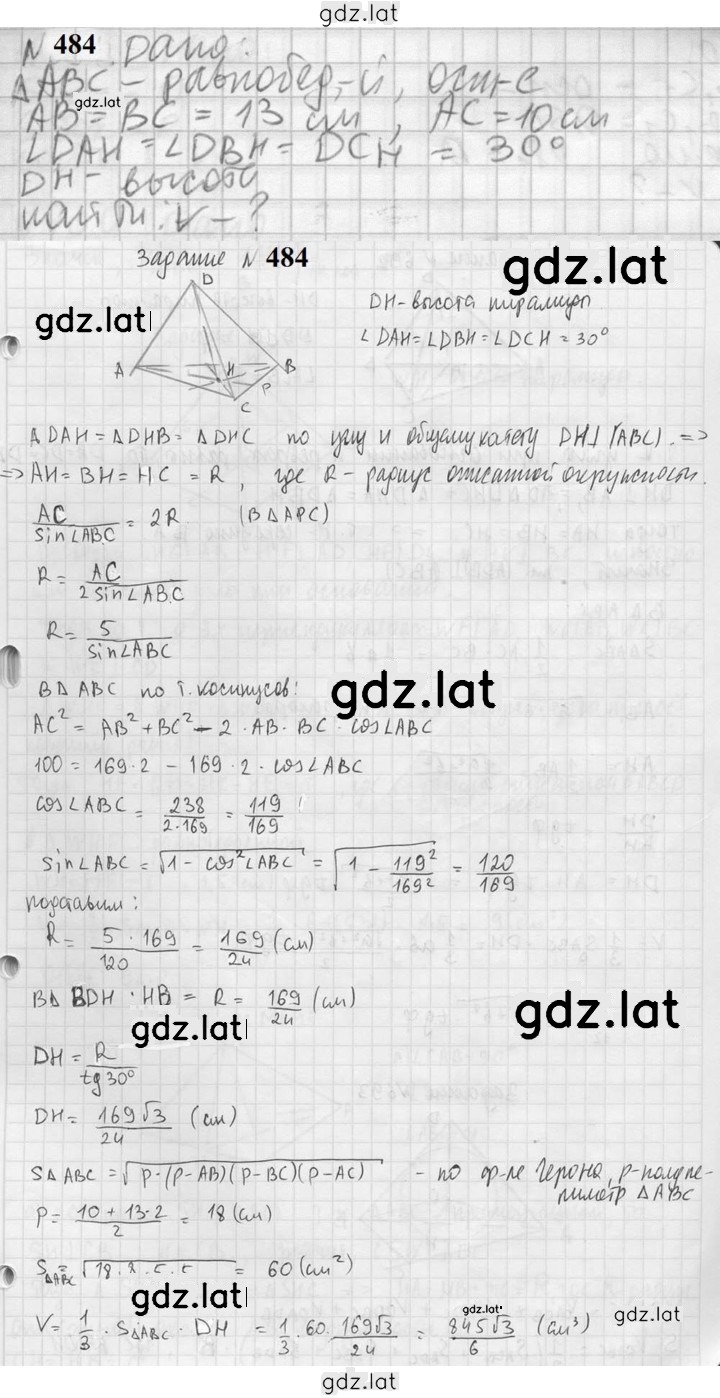 gdz.lat
N 484 Дано:
△ABC - равнобед,-й, осн-е
gdz.lat
AB = BC = 13 см, AC = 10 см
∠DAH = ∠DBH = DCH = 30°
DH - высота
найти: V - ?
Задание N 484
gdz.lat
gdz.lat
D
A
H
B
C
P
DH - высота пирамиды
∠DAH = ∠DBH = ∠DCH = 30°
△DAH = △DHB = △DHC по углу и общему катету DH⊥(ABC). =>
=> AH = BH = HC = R, где R - радиус описанной окружности.
AC/sin∠ABC = 2R (в △ABC)
R = AC/2sin∠ABC
R = 5/sin∠ABC
В △ABC по т. косинусов:
gdz.lat
AC² = AB² + BC² - 2 · AB · BC · cos∠ABC
100 = 169·2 - 169·2·cos∠ABC
cos∠ABC = 238/2·169 = 119/169
sin∠ABC = √1 - cos²∠ABC = √1 - 119²/169² = 120/169
подставим:
R = 5·169/120 = 169/24 (см)
В △ BDH · HB = R = 169/24 (см)
gdz.lat
gdz.lat
DH = R/tg30°
DH = 169√3/24 (см)
S△ABC = √p·(p-AB)(p-BC)(p-AC) - по ф-ле Герона, p-полупе-
риметр △ABC
p = 10 + 13·2/2 = 18 (см)
S△ABC = √18·8·5·5 = 60 (см²)
gdz.lat
gdz.lat
gdz.lat
V = 1/3 · S△ABC · DH = 1/3·60·169√3/24 = 845√3/6 (см³)
gdz.lat